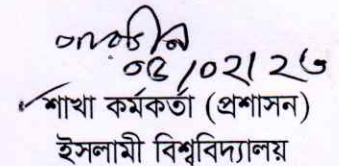 ০৫/০২/২৬
শাখা কর্মকর্তা (প্রশাসন)
ইসলামী বিশ্ববিদ্যালয়